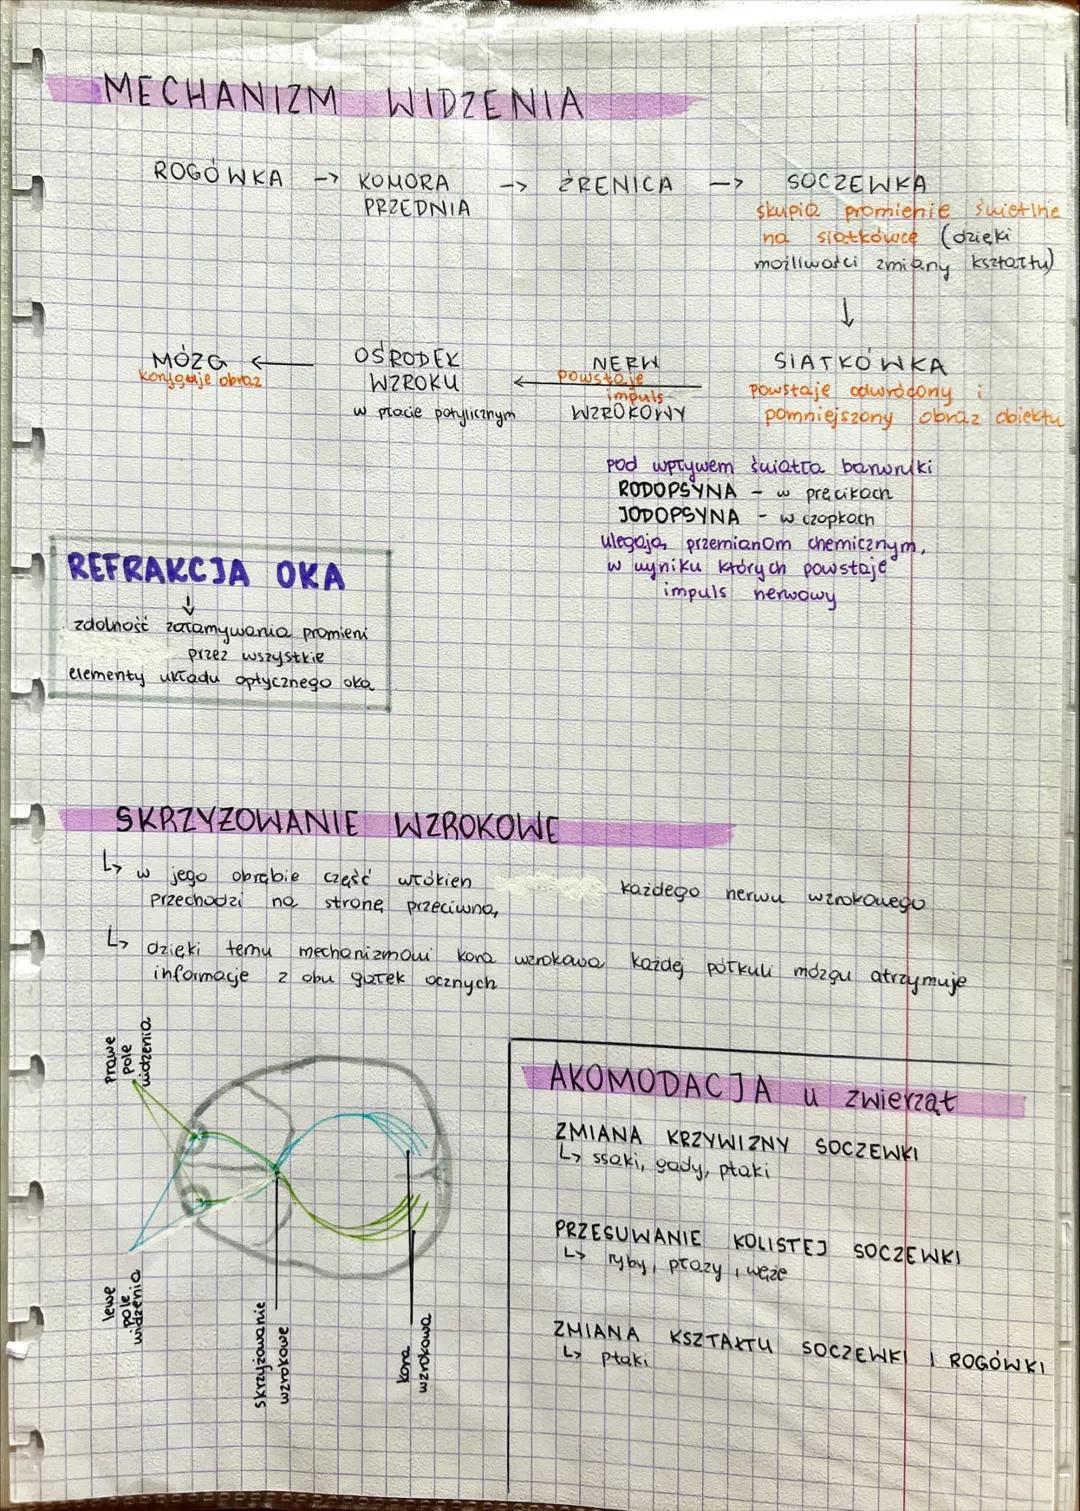 MECHANIZM WIDZENIA
ROGÓWKA -> KOMORA PRZEDNIA -> ŹRENICA -> SOCZEWKA
skupia promienie świetlne
na siatkówce (dzięki
możliwości zmiany kształtu)
↓
SIATKÓWKA
powstaje odwrócony i
pomniejszony obraz obiektu
NERW
powstaje
impuls
WZROKOWY
OŚRODEK
WZROKU
w płacie potylicznym
MÓZG
koryguje obraz
pod wpływem światła barwniki
RODOPSYNA - w pręcikach
JODOPSYNA - w czopkach
ulegają przemianom chemicznym,
w wyniku których powstaje
impuls nerwowy
REFRAKCJA OKA
↓
zdolność załamywania promieni
przez wszystkie
elementy układu optycznego oka
SKRZYŻOWANIE WZROKOWE
↳ w jego obrębie część włókien każdego nerwu wzrokowego
przechodzi na stronę przeciwną,
↳ dzięki temu mechanizmowi kora wzrokowa każdej półkuli mózgu otrzymuje
informacje z obu gałek ocznych
prawe
pole
widzenia
lewe
pole
widzenia
skrzyżowanie
wzrokowe
kora
wzrokowa
AKOMODACJA u zwierząt
ZMIANA KRZYWIZNY SOCZEWKI
↳ ssaki, gady, ptaki
PRZESUWANIE KOLISTEJ SOCZEWKI
↳ ryby, płazy, węże
ZMIANA KSZTAŁTU SOCZEWKI I ROGÓWKI
↳ ptaki